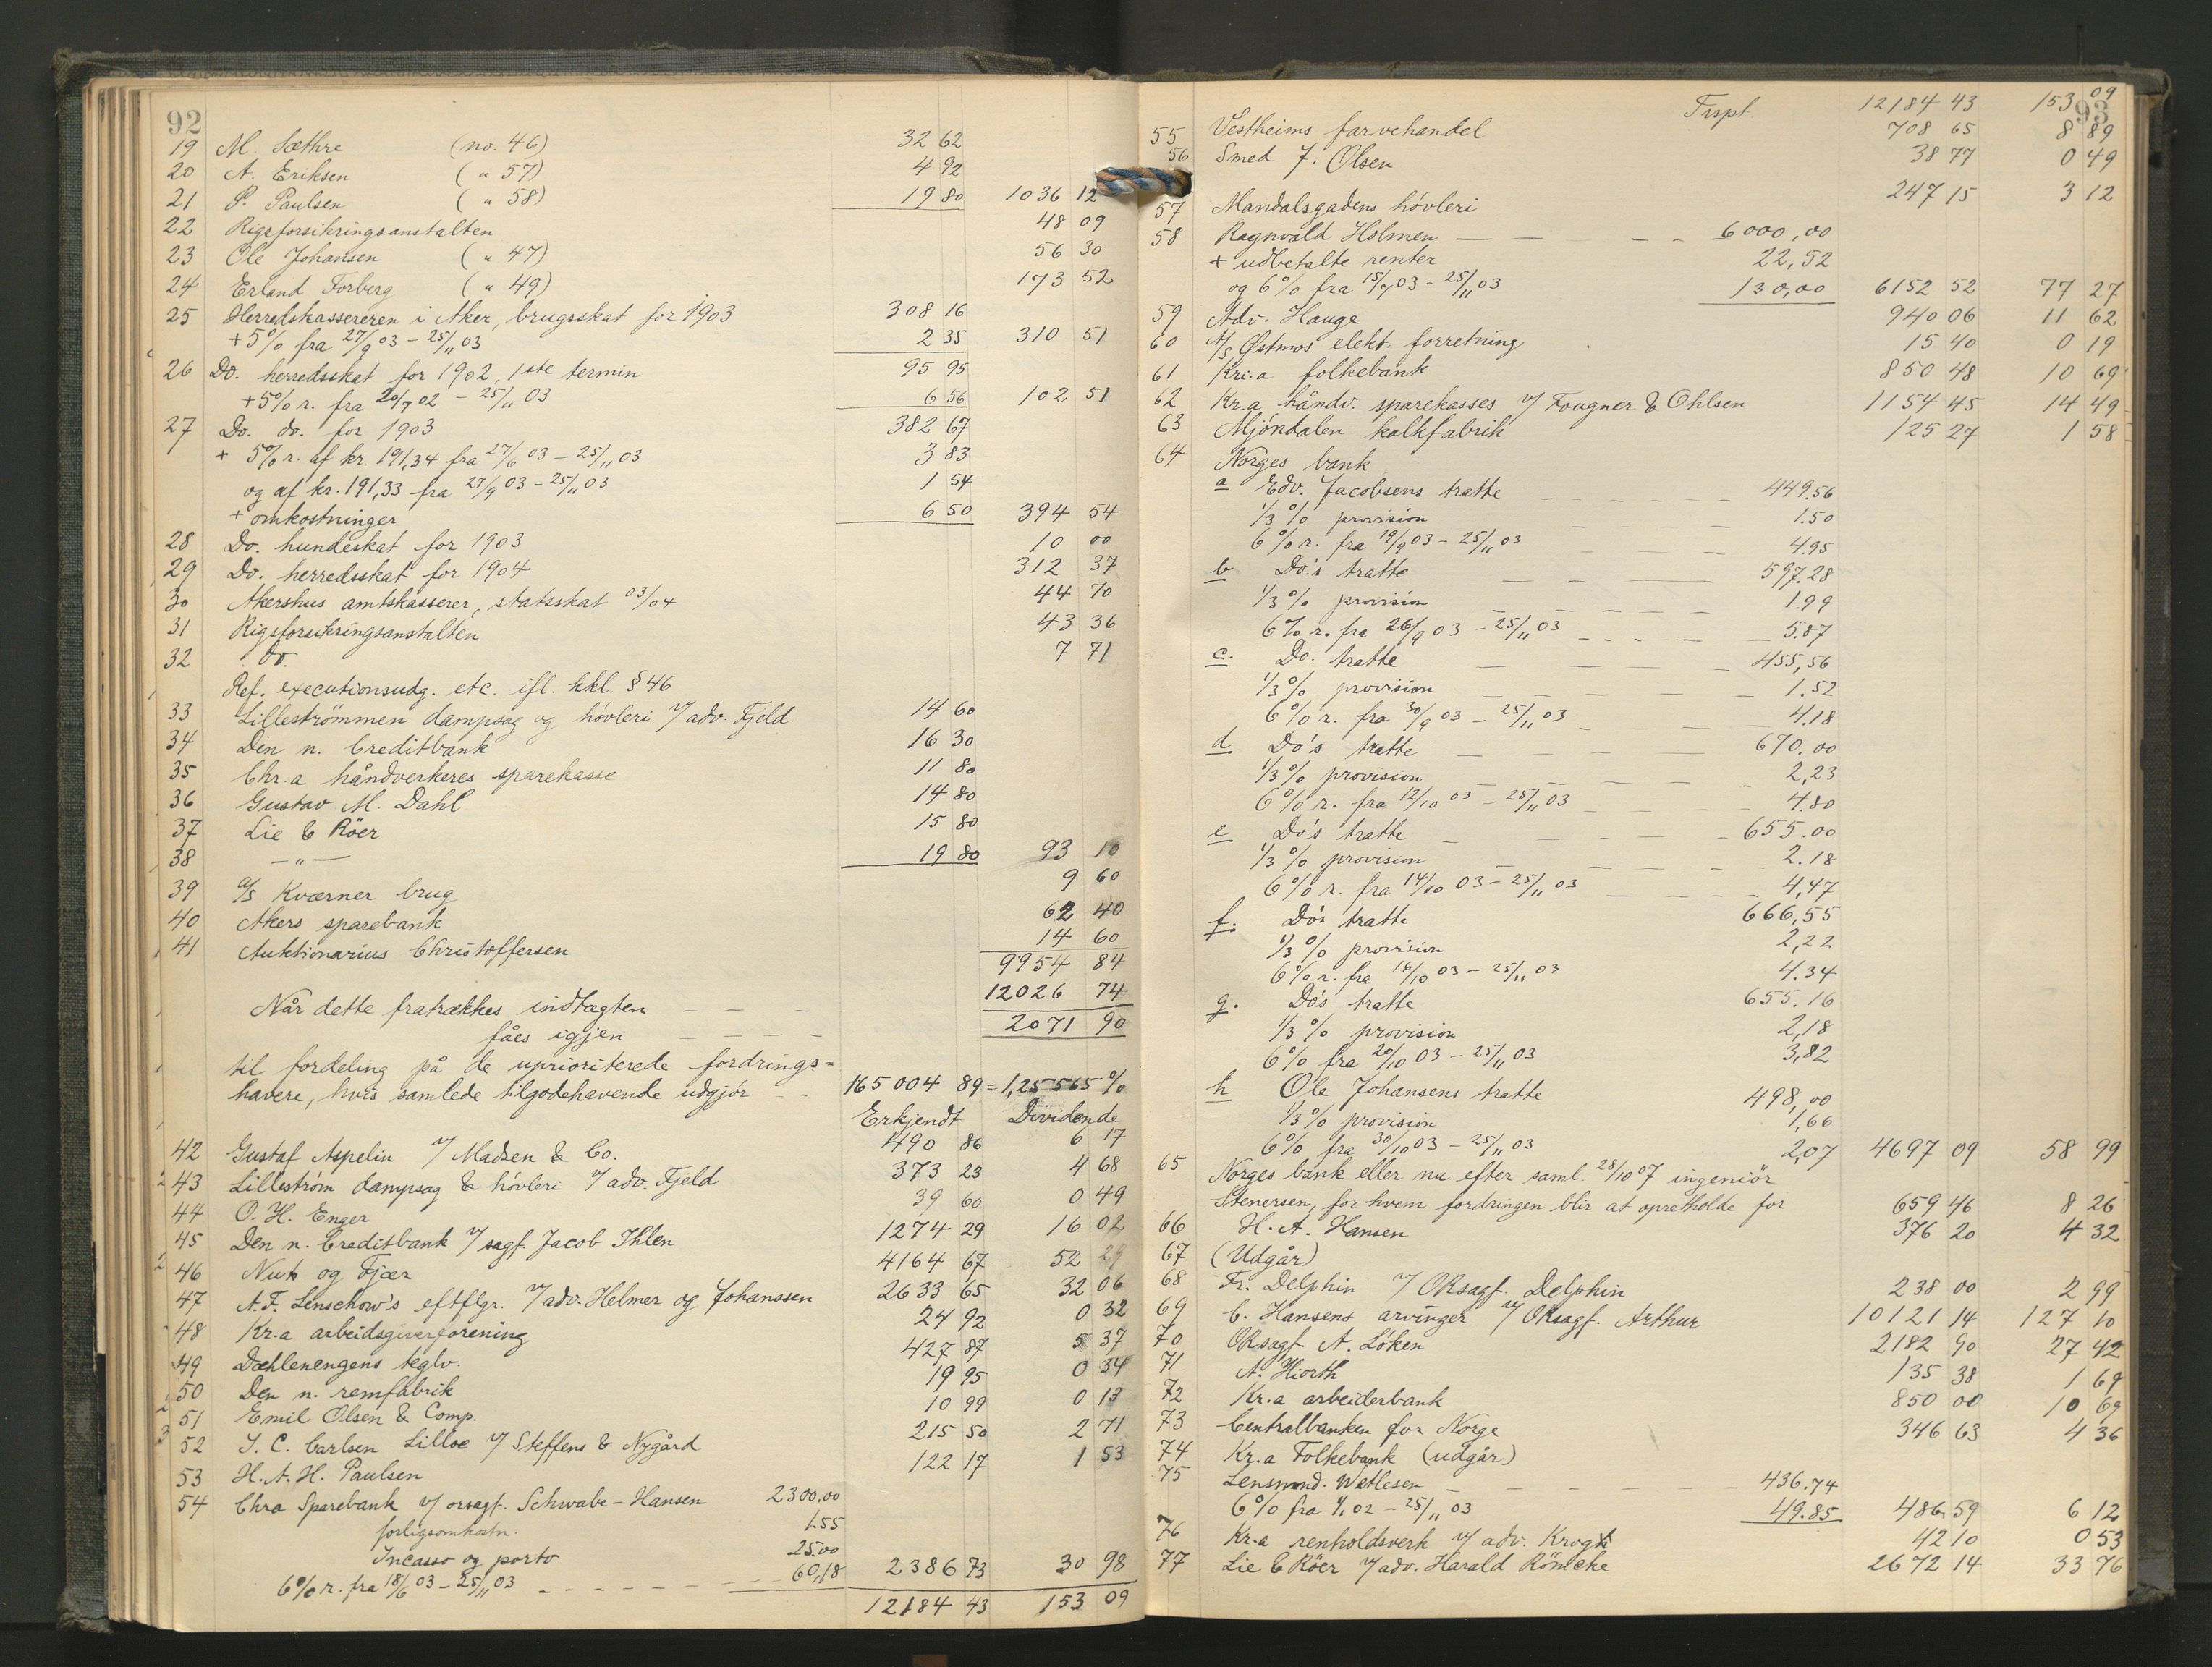 92
19 M. Sæthre (no. 46) 32 62
20 A. Eriksen (" 57) 4 92
21 P. Paulsen (" 58) 19 80 1036 12
22 Rigsforsikringsanstalten 48 09
23 Ole Johansen (" 47) 56 30
24 Erland Forberg (" 49) 173 52
25 Herredskassereren i Aker, brugsskat for 1903 308 16
+ 5% fra 27/9 03 - 25/11 03 2 35 310 51
26 Do. herredsskat for 1902, 1ste termin 95 95
+ 5% r. fra 20/7 02 - 25/11 03 6 56 102 51
27 Do. do. for 1903 382 67
+ 5% r. af kr. 191,34 fra 27/6 03 - 25/11 03 3 83
og af kr. 191,33 fra 27/9 03 - 25/11 03 1 54
+ omkostninger 6 50 394 54
28 Do. hundeskat for 1903 10 00
29 Do. herredsskat for 1904 312 37
30 Akershus amtskasserer, statsskat 03/04 44 70
31 Rigsforsikringsanstalten 43 36
32 Do. 7 71
Ref. executionsudg. etc. ifl. kkl. § 46
33 Lilleströmmen dampsag og hövleri v/ adv. Fjeld 14 60
34 Den n. Creditbank 16 30
35 Chr.a håndverkeres sparekasse 11 80
36 Gustav M. Dahl 14 80
37 Lie & Röer 15 80
38 — " — 19 80 93 10
39 a/s Kværner brug 9 60
40 Akers sparebank 62 40
41 Auktionarius Christoffersen 14 60
9954 84
Når dette fratrækkes indtægten 12026 74
fåes igjen 2071 90
til fordeling på de uprioriterede fordrings=
havere, hvis samlede tilgodehavende udgjör 165004 89 = 1,25565 %
Erkjendt Dividende
42 Gustaf Aspelin v/ Madsen & Co. 490 86 6 17
43 Lilleström dampsag & hövleri v/ adv. Fjeld 373 23 4 68
44 O. H. Enger 39 60 0 49
45 Den n. Creditbank v/ sagf. Jacob Ihlen 1274 29 16 02
46 Nuts og Fjær 4164 67 52 29
47 A.F. Lenschow's eftflgr. v/ adv. Helmer og Johanssen 2633 65 32 06
48 Kr.a arbeidsgiverforening 24 92 0 32
49 Dæhlenengens teglv. 427 87 5 37
50 Den n. remfabrik 19 95 0 34
51 Emil Olsen & Comp. 10 99 0 13
52 S. C. Carlsen Lilloe v/ Steffens & Nygård 215 50 2 71
53 H. A. H. Paulsen 122 17 1 53
54 Chra Sparebank v/ orsagf. Schwabe-Hansen 2300,00
forligsomkostn. 1.55
Incasso og porto 25.00
6% r. fra 18/6 03 - 25/11 03 60,18 2386 73 30 98
12184 43 153 09
93
Trspt 12184 43 153 09
55 Vestheims farvehandel 708 65 8 89
56 Smed J. Olsen 38 77 0 49
57 Mandalsgadens hövleri 247 15 3 12
58 Ragnvald Holmen 6000,00
+ udbetalte renter 22,52
og 6% fra 15/7 03 - 25/11 03 130,00 6152 52 77 27
59 Adv. Hauge 940 06 11 62
60 A/S Østmos elekt. forretning 15 40 0 19
61 Kri.a folkebank 850 48 10 69
62 Kr.a håndv. sparekasses v/ Fougner & Ohlsen 1154 45 14 49
63 Mjöndalen kalkfabrik 125 27 1 58
64 Norges bank
a Edv. Jacobsens tratte 449.56
1/3 % provision 1.50
6% r. fra 19/9 03 - 25/11 03 4.95
b Do.'s tratte 597.28
1/3 % provision 1.99
6% r. fra 26/9 03 - 25/11 03 5.87
c. Do. tratte 455,56
1/3 % provision 1.52
6% r. fra 30/9 03 - 25/11 03 4.18
d Do's tratte 670.00
1/3 % provision 2,23
6% r. fra 12/10 03 - 25/11 03 4.80
e Do's tratte 655.00
1/3 % provision 2.18
6% r. fra 14/10 03 - 25/11 03 4,47
f. Do's tratte 666,55
1/3 % provision 2,22
6% r. fra 16/10 03 - 25/11 03 4.34
g. Do's tratte 655.16
1/3 % provision 2,18
6% fra 20/10 03 - 25/11 03 3,82
h Ole Johansens tratte 498,00
1/3 % provision 1,66
6% fra 30/10 03 - 25/11 03 2,07 4697 09 58 99
65 Norges bank eller nu efter saml. 28/10 07 ingeniör
Stenersen, for hvem fordringen blir at opretholde for 659 46 8 26
66 H. A. Hansen 376 20 4 32
67 (Udgår)
68 Fr. Delphin v/ ORsagf. Delphin 238 00 2 99
69 C. Hansens arvinger v/ ORsagf. Arthur 10121 14 127 10
70 ORsagf A. Löken 2182 90 27 42
71 A. Hiorth 135 38 1 69
72 Kr.a arbeiderbank 850 00 10 69
73 Centralbanken for Norge 346 63 4 36
74 Kr.a Folkebank (udgår)
75 Lensmnd. Wetlesen 436.74
6% fra 1/1 02 - 25/11 03 49.85 486 59 6 12
76 Kr.a renholdsverk v/ adv. Krogh 42 10 0 53
77 Lie & Röer v/ adv. Harald Römcke 2672 14 33 76